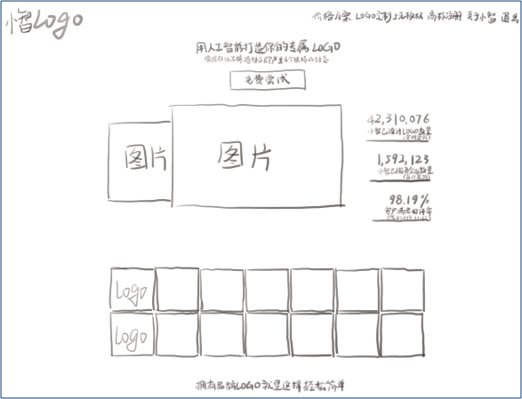 小智Logo
价格方案 LOGO定制 上元授权 商标注册 关于小智 退出
用人工智能打造你的专属LOGO
免费尝试
图片
图片
42,310,076
小智已设计LOGO数量
1,592,123
98.19%
Logo
Logo
拥有品牌LOGO就是这样轻松简单